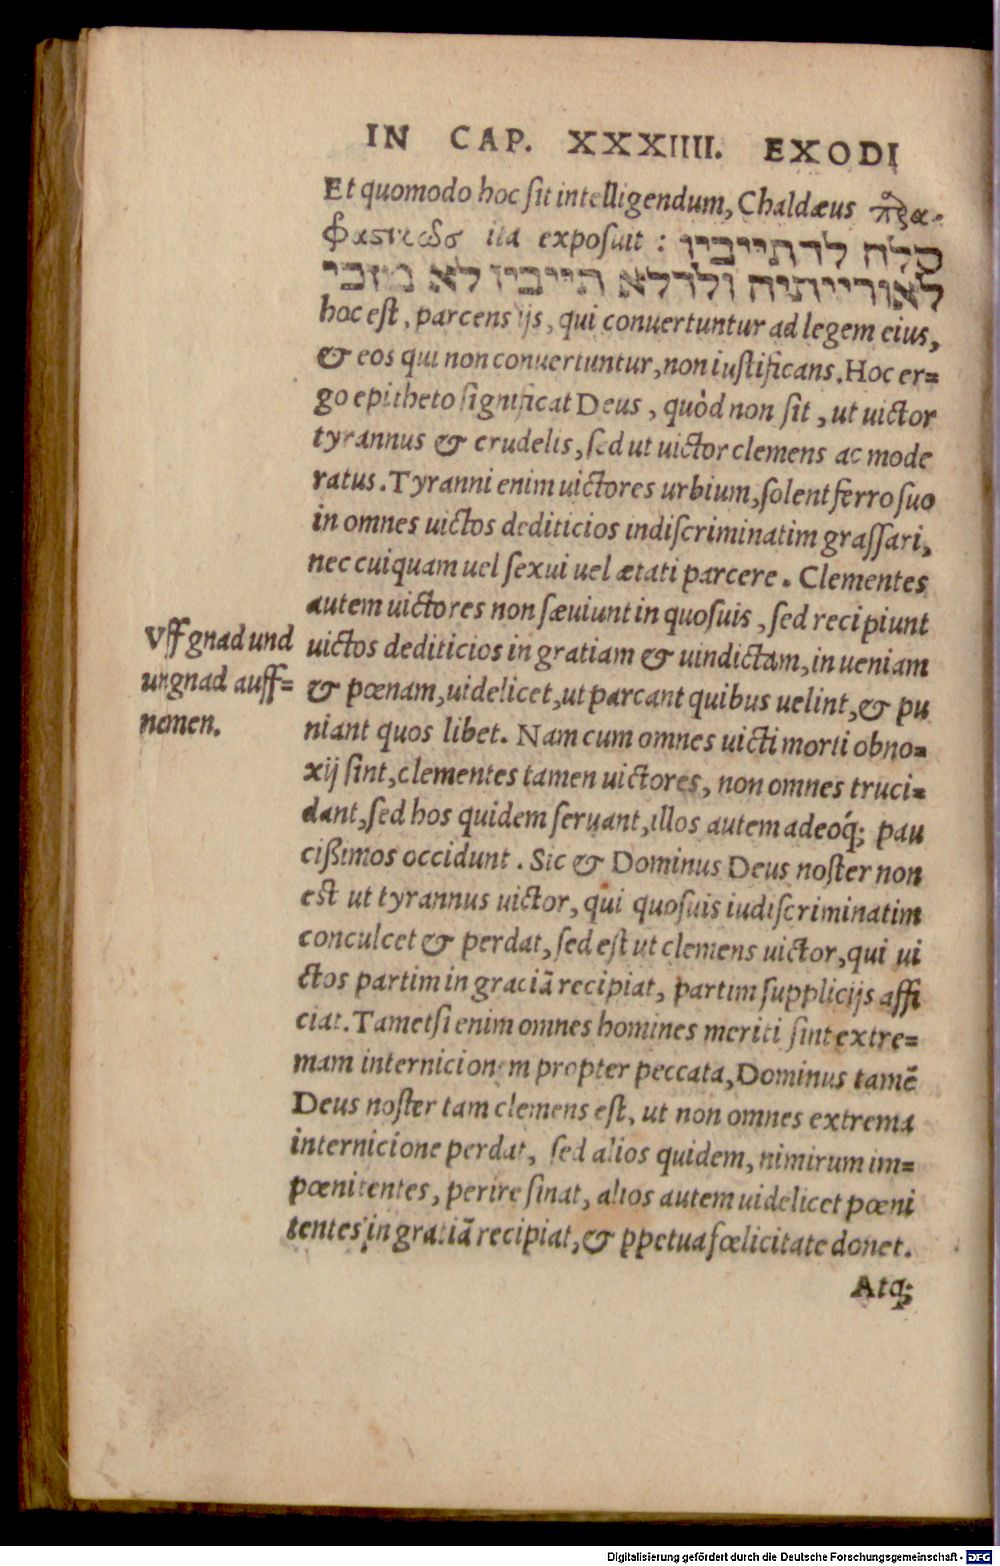 IN CAP. XXXIIII. EXODI
Et quomodo hoc ſit intelligendum, Chaldæus παρα-
φραστικῶς ita expoſuit : סלח לדתייבין
לאורייתיה ולדלא תייבין לא מזכי
hoc eſt, parcens ijs, qui conuertuntur ad legem eius,
& eos qui non conuertuntur, non iuſtificans. Hoc er=
go epitheto ſignificat Deus, quòd non ſit, ut uictor
tyrannus & crudelis, ſed ut uictor clemens ac mode
ratus. Tyranni enim uictores urbium, ſolent ferro ſuo
in omnes uictos dediticios indiſcriminatim graſſari,
nec cuiquam uel ſexui uel ætati parcere. Clementes
autem uictores non ſæuiunt in quoſuis, ſed recipiunt
Vff gnad und
ungnad auff=
nemen.
uictos dediticios in gratiam & uindictam, in ueniam
& pœnam, uidelicet, ut parcant quibus uelint, & pu
niant quos libet. Nam cum omnes uicti morti obno=
xij ſint, clementes tamen uictores, non omnes truci=
dant, ſed hos quidem ſeruant, illos autem adeoq́; pau
cißimos occidunt. Sic & Dominus Deus noſter non
est ut tyrannus uictor, qui quoſuis iudiſcriminatim
conculcet & perdat, ſed eſt ut clemens uictor, qui ui
ctos partim in graciã recipiat, partim ſupplicijs affi
ciat. Tametſi enim omnes homines meriti ſint extre=
mam internicionem propter peccata, Dominus tamẽ
Deus noſter tam clemens eſt, ut non omnes extrema
internicione perdat, ſed alios quidem, nimirum im=
pœnitentes, perire ſinat, alios autem uidelicet pœni
tentes in gratiã recipiat, & ꝑpetua fœlicitate donet.
Atq;
Digitalisierung gefördert durch die Deutsche Forschungsgemeinschaft - DFG